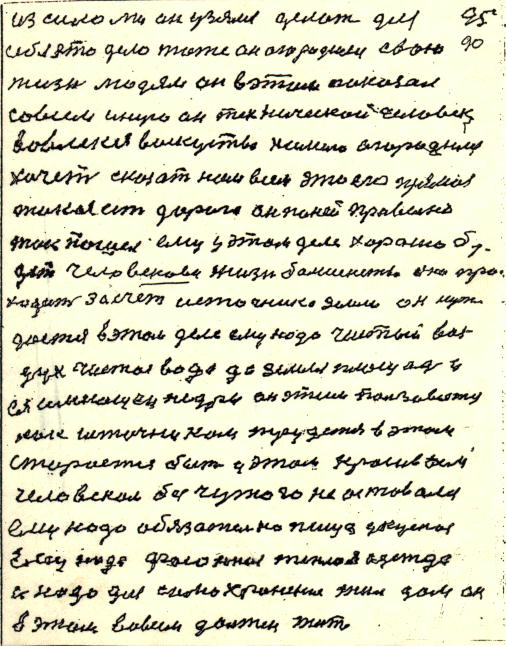 из сило ми он узяля делат для 95
себя это дело тоже он огородней свою 90
жизн людям он вэтим показал
совсем иную он технической человек
вовлекся вискуство нашего огородника
хочет сказат нам всем это его прямая
такая ест дорога он поней правелно
так пошел ему у этом деле хорошо бу-
дет человекова жизн болшенство она про-
ходит засчет источника земли он нуж-
дается вэтом деле ему надо чистый воз
дух чистая вода да земля площад и
ея недры он этим ползовати
источником трудится в этом
старается быт у этом красивым
человеком бы чужого не оставала
ему надо обязателно пища укусная
Ему надо фасонная теплая одежда
и надо для сохранения жил дом он
в этом вовсем должен жит